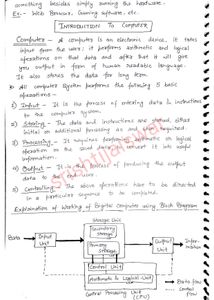 something besides simply running the hardware.
Ex.- Web Browser, Gaming software etc.
INTRODUCTION TO COMPUTER
Computer - A computer is an electronic device, it takes
input from the user; it performs arithmetic and logical
operations on that data and after that it will give
you output in form of human readable language.
It also stores the data for long term.
All computer system performs the following 5 basic
operations -
1) Input - It is the process of entering data & instructions
to the computer system.
2) Storing - The data and instructions are stored either
initial or additional processing as and when required.
3) Processing - It requires performing arithmetic or logical
operation on the saved data to convert it into useful
information.
4) Output - It is the process of producing the output
data to the end user.
5) Controlling - The above operations have to be directed
in a particular sequence to be completed.
Explanation of Working of Digital Computer using Block Diagram
Storage Unit
Data
Input Unit
Secondary Storage
Primary Storage
Output Unit
Information
Control Unit
Arithmetic & Logical Unit
Data flow
Control
Central Processing Unit
(CPU)